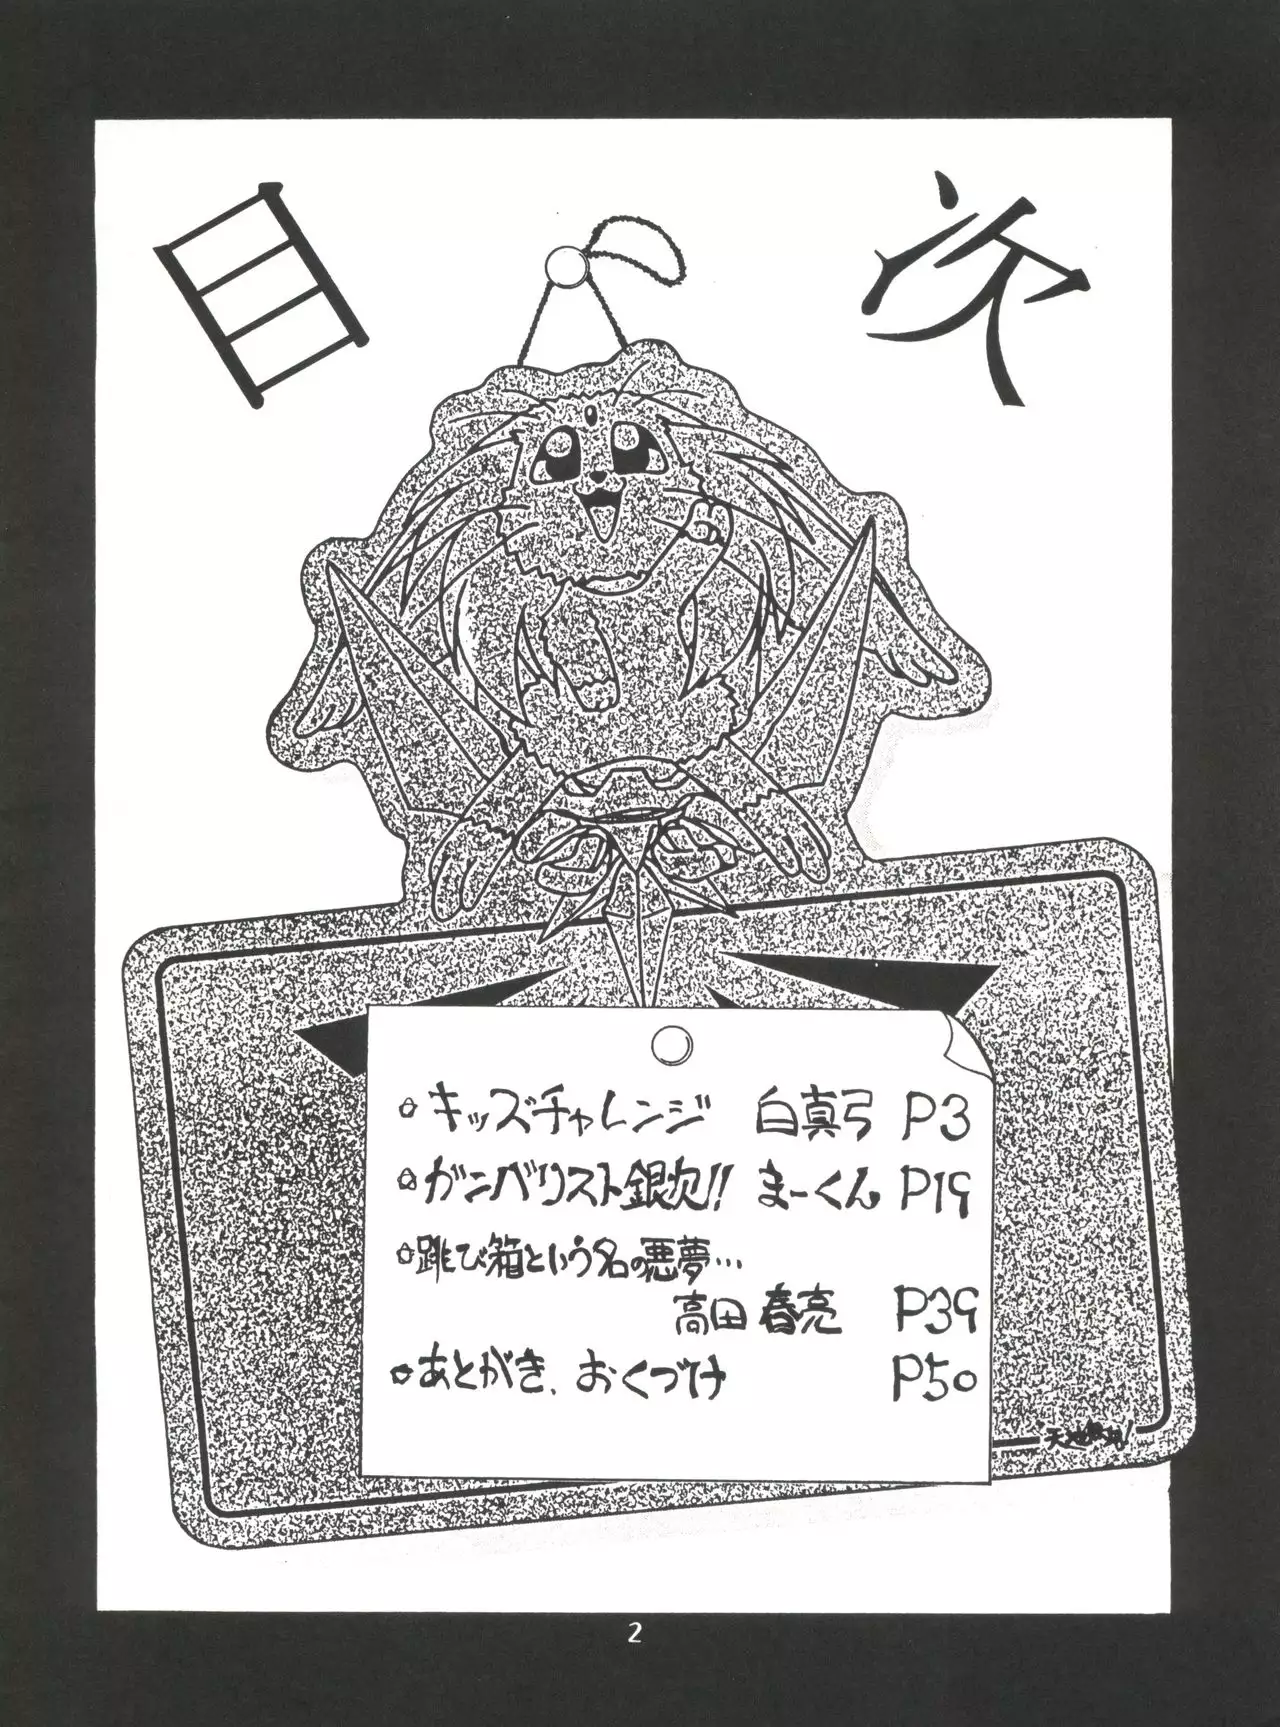 目次
キッズチャレンジ 白真弓 P3
ガンバリスト銀次!! まーくん P19
跳び箱という名の悪夢…
高田春亮 P39
あとがき、おくづけ P50
movie
天地無用!
2